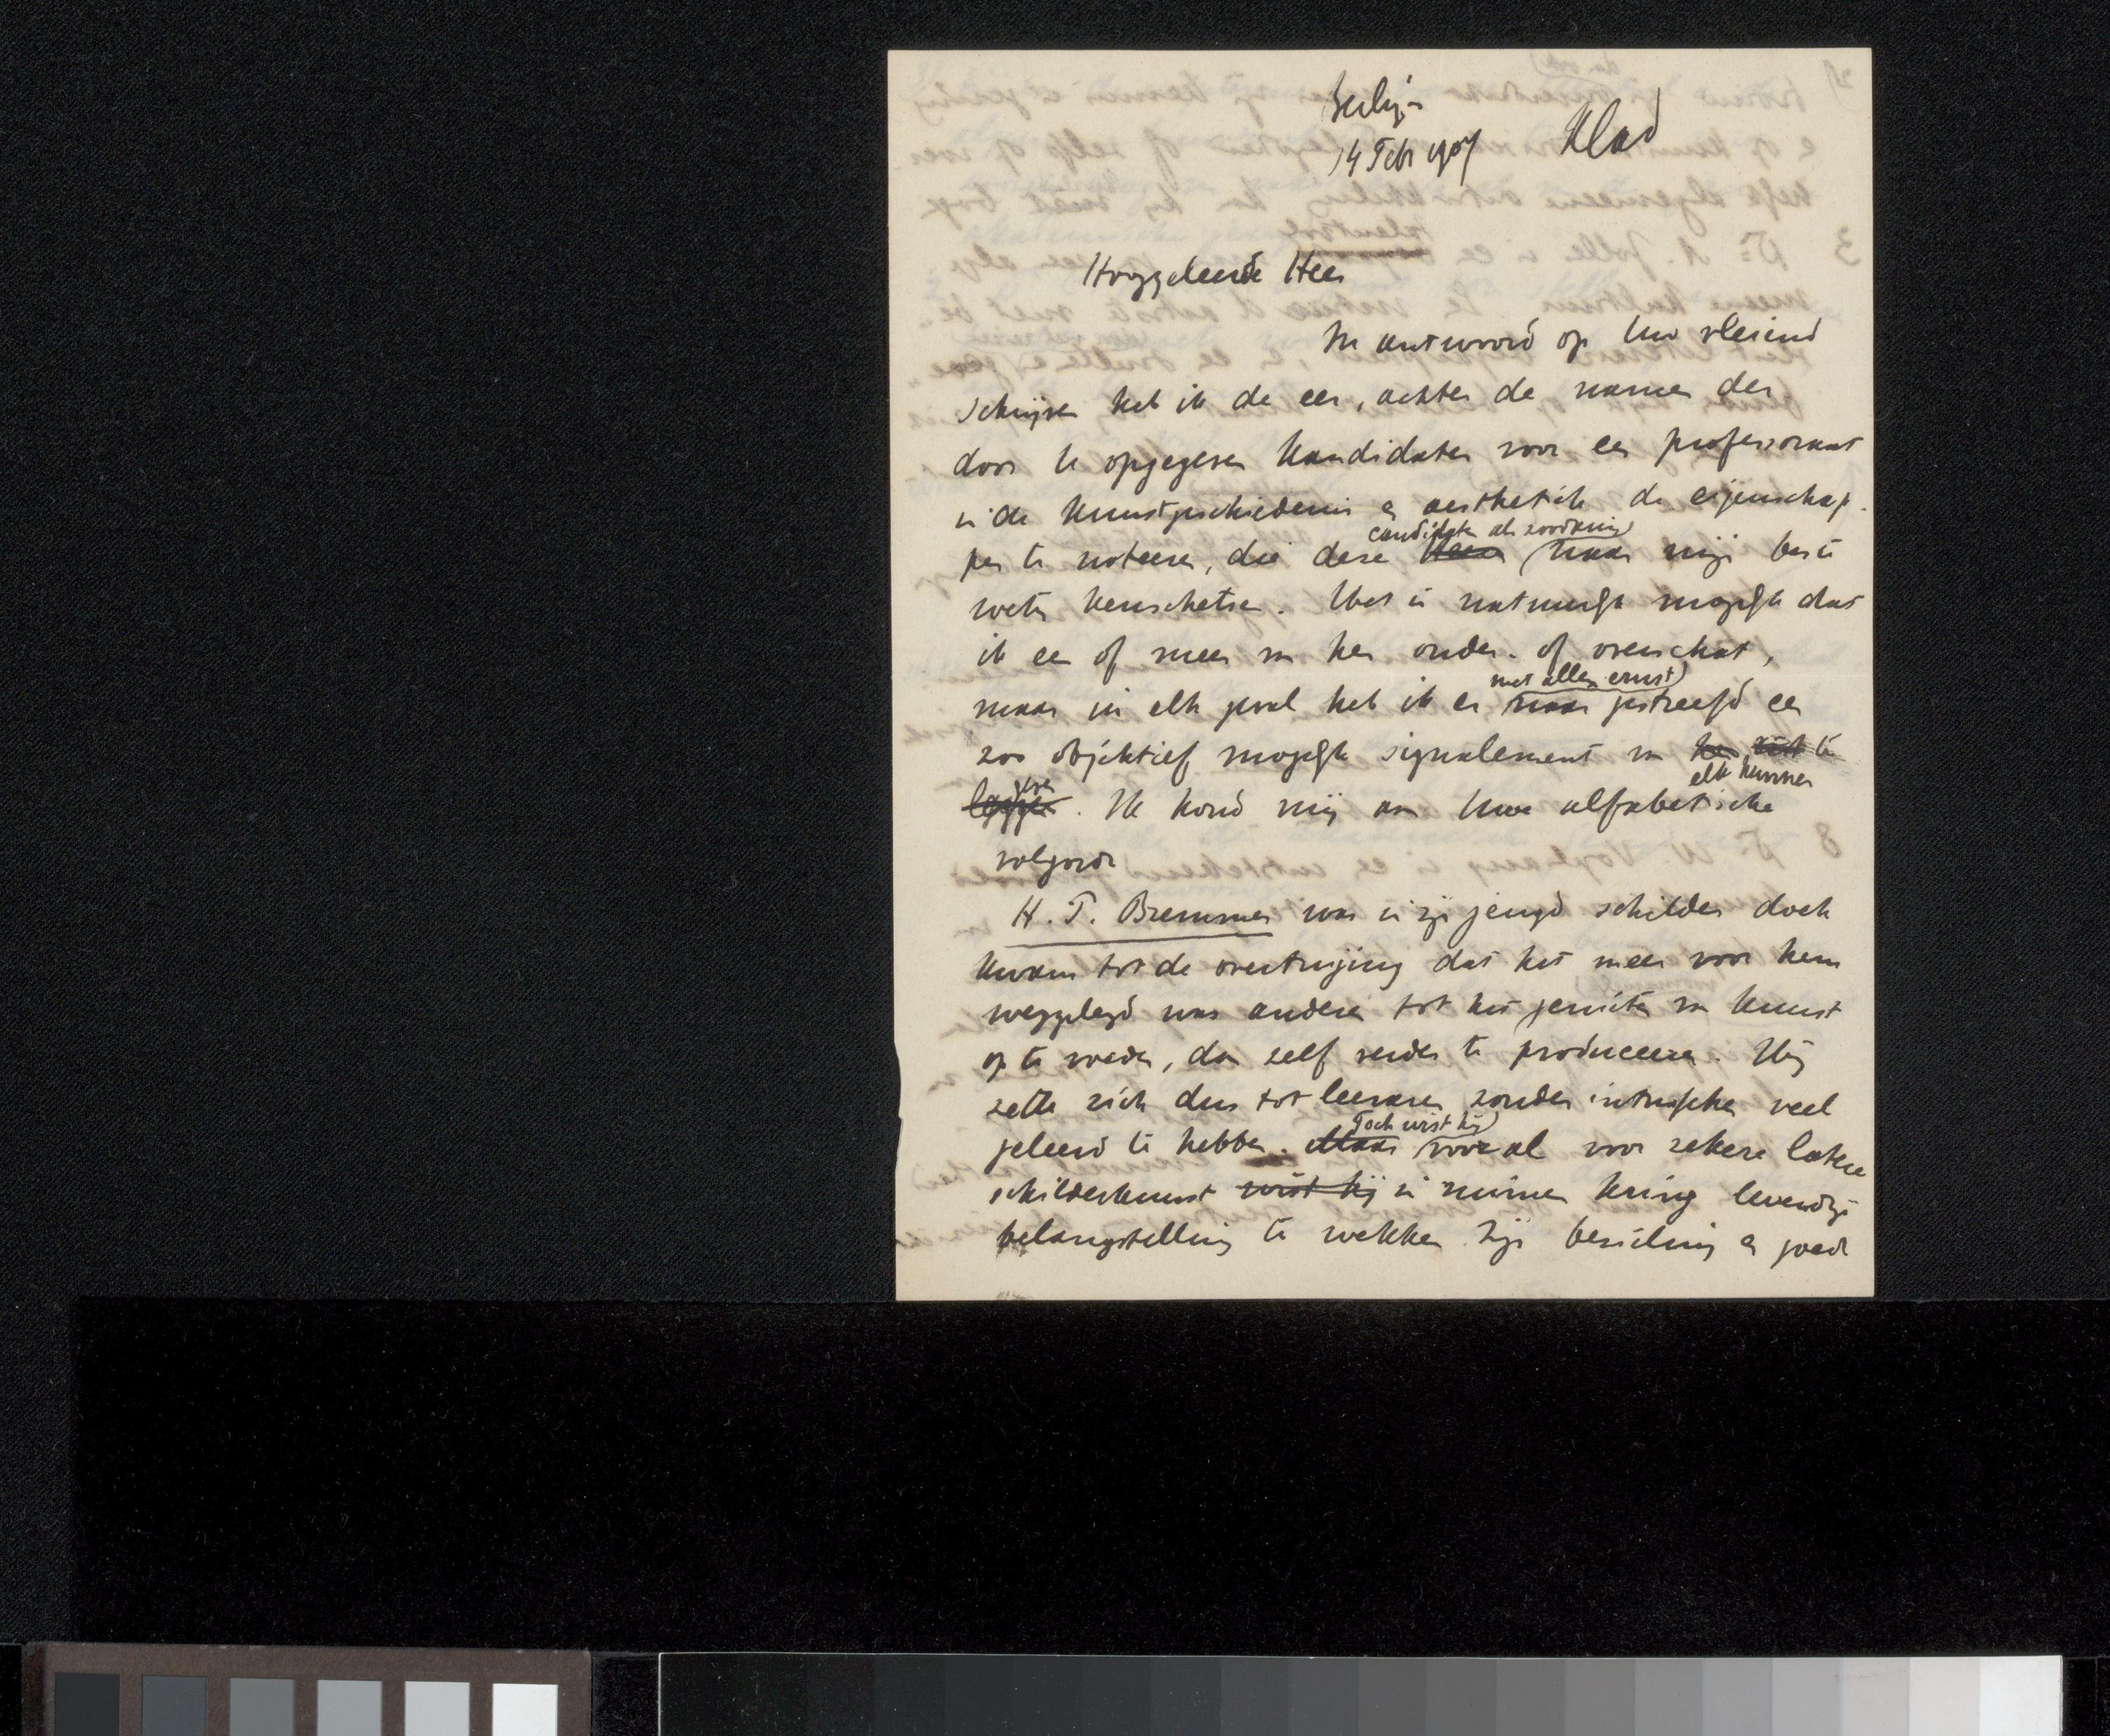 Berlijn
14 Febr 1907 Klad
Hooggeleerde Heer
In antwoord op Uw vleiend
schrijven heb ik de eer, achter de namen der
door U opgegeven kandidaten voor een professoraat
in de kunstgeschiedenis en aesthetick de eigenschap-
candidaten als zoodanig
pen te noteeren, die deze heeren naar mijn beste
weten kenschetsen. Het is natuurlijk mogelijk dat
ik een of meer van hen onder- of overschat,
met allen ernst
maar in elk geval heb ik er naar gestreefd een
zoo objektief mogelijk signalement van te
elk hunner
geven
leggen. Ik houd mij aan Uwe alfabetische
volgorde
H. P. Bremmer was in zijn jeugd schilder doch
kwam tot de overtuiging dat het meer voor hem
weggelegd was anderen tot het genieten van kunst
op te voeden, dan zelf verder te produceeren. Hij
zette zich dus tot leeraren zonder intusschen veel
Toch wist hij
geleerd te hebben. Maar vooral voor zekere latere
schilderkunst wist hij in ruimen kring levendige
belangstelling te wekken. Zijn bezieling en goede